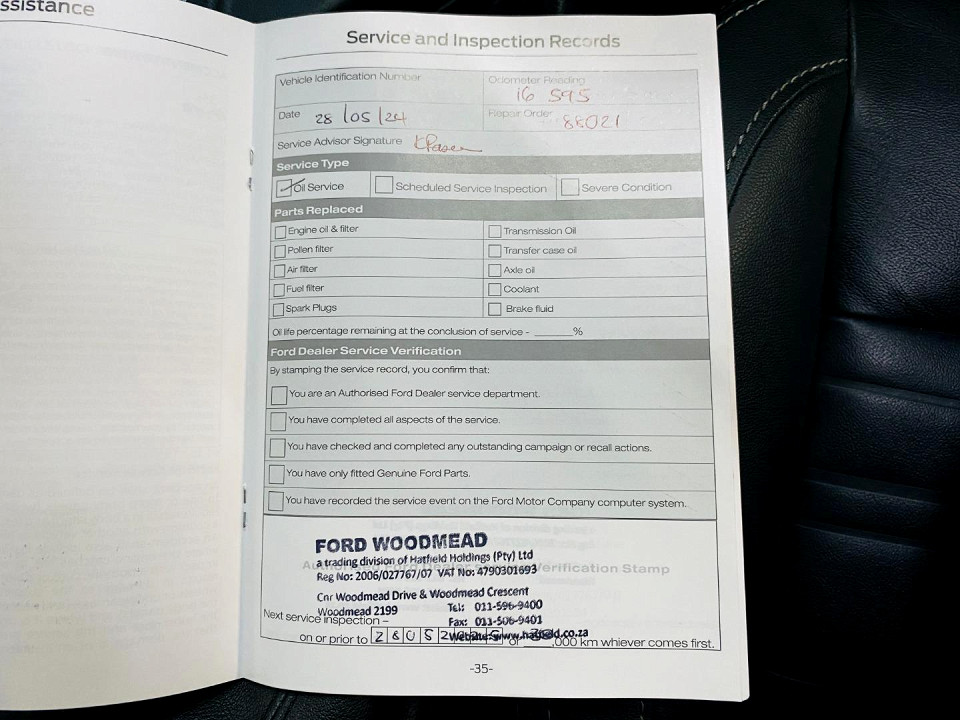 ssistance
Service and Inspection Records
Vehicle Identification Number
Odometer Reading
16 595
Date 28/05/24
Repair Order 88021
Service Advisor Signature
Service Type
Oil Service Scheduled Service Inspection Severe Condition
Parts Replaced
Engine oil & filter Transmission Oil
Pollen filter Transfer case oil
Air filter Axle oil
Fuel filter Coolant
Spark Plugs Brake fluid
Oil life percentage remaining at the conclusion of service - ______%
Ford Dealer Service Verification
By stamping the service record, you confirm that:
You are an Authorised Ford Dealer service department.
You have completed all aspects of the service.
You have checked and completed any outstanding campaign or recall actions.
You have only fitted Genuine Ford Parts.
You have recorded the service event on the Ford Motor Company computer system.
FORD WOODMEAD
a trading division of Hatfield Holdings (Pty) Ltd
Verification Stamp
Reg No: 2006/027767/07 VAT No: 4790301693
Cnr Woodmead Drive & Woodmead Crescent
Woodmead 2199 Tel: 011-596-9400
Fax: 011-506-9401
Next service inspection –
Website: www.hatfield.co.za
on or prior to 2805 or ,000 km whiever comes first.
-35-